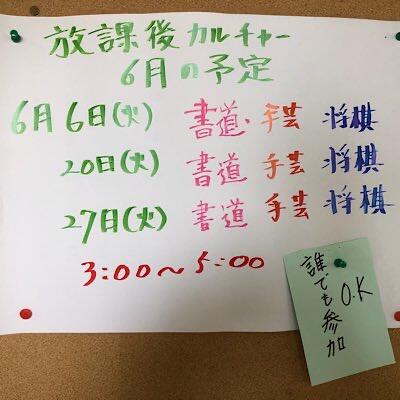 放課後カルチャー
6月の予定
6月6日(火) 書道・手芸 将棋
20日(火) 書道 手芸 将棋
27日(火) 書道 手芸 将棋
3:00～5:00
誰でも参加
O.K